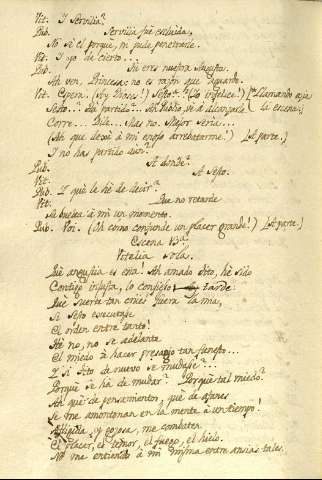 Vit. Y Servilia?
Pub. Servilia fué excluida,
No sé el porque, ni pude penetrarle.
Vit. Y yo de cierto...
Pub. Sí eres nuestra Augusta.
Ah ven, Princesa: no es razón que aguarde.
Vit. Espera. (Ay Dioses!) Sesto... (Yo infelice!) (Llamando acia
Sesto... Ha partido... Ah Publio, vé á alcanzarle. (la escena.)
Corre... Dile... Mas no. Mejor sería...
(Ah que dexé à mi enojo arrebatarme!) (Aparte.)
Y no has partido aun?
Pub. A donde?
Vit. A Sesto.
Pub. Y qué le hé de decir?
Vit. Que no retarde
Su buelta à mi un momento.
Pub. Voi. (Oh como confunde un placer grande!) (Aparte.)
Escena 13ª
Vitelia sola.
Qué angustia es esta! Ah amado Tito, hé sido
Contigo injusta, lo confieso tarde
Qué suerte tan cruel fuera la mia,
Si Sesto executase
El orden entre tanto!
Hé no, no se adelante
El miedo à hacer presagio tan funesto...
Y si Tito de nuevo se mudase?...
Porqué se ha de mudar? Porqué tal miedo?
Ah qué de pensamientos, qué de afanes
Se me amontonan en la mente à un tiempo!
Afligida, y gozosa, me combaten
El placer, el temor, el fuego, el hielo.
No me entiendo à mí misma entre ansias tales.